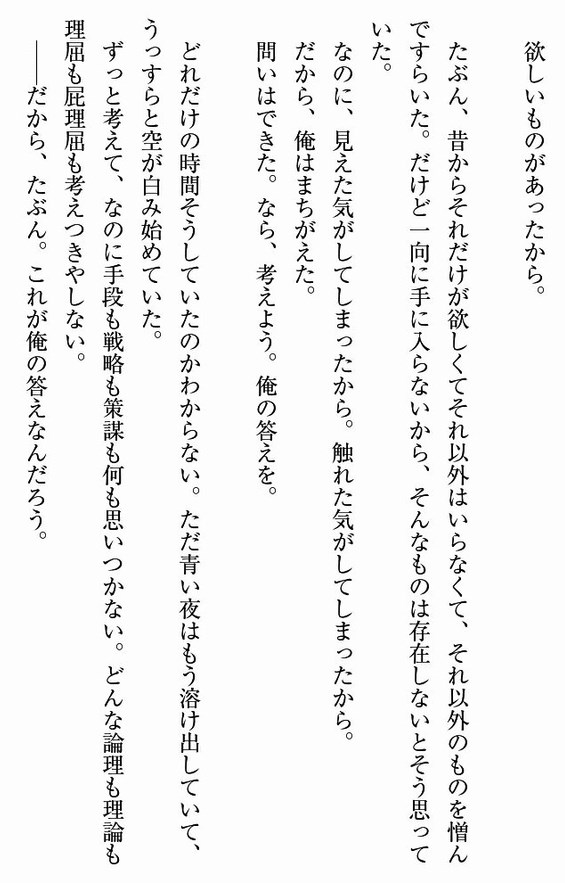 欲しいものがあったから。
たぶん、昔からそれだけが欲しくてそれ以外はいらなくて、それ以外のものを憎ん
ですらいた。だけど一向に手に入らないから、そんなものは存在しないとそう思って
いた。
なのに、見えた気がしてしまったから。触れた気がしてしまったから。
だから、俺はまちがえた。
問いはできた。なら、考えよう。俺の答えを。
どれだけの時間そうしていたのかわからない。ただ青い夜はもう溶け出していて、
うっすらと空が白み始めていた。
ずっと考えて、なのに手段も戦略も策謀も何も思いつかない。どんな論理も理論も
理屈も屁理屈も考えつきやしない。
――だから、たぶん。これが俺の答えなんだろう。